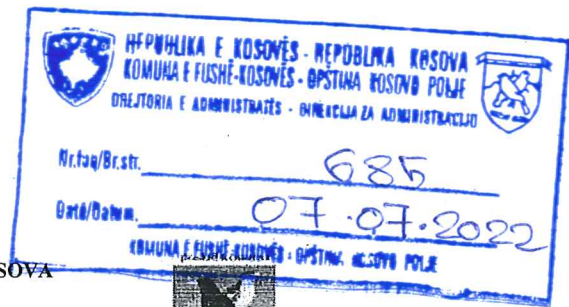 REPUBLIKA E KOSOVËS - REPUBLIKA KOSOVA
KOMUNA E FUSHË-KOSOVËS - OPŠTINA KOSOVO POLJE
DREJTORIA E ADMINISTRATËS - DIREKCIJA ZA ADMINISTRACIJU
Nr.faq/Br.str. 685
Datë/Datum. 07.07.2022
KOMUNA E FUSHË-KOSOVËS - OPŠTINA KOSOVO POLJE
SOVA